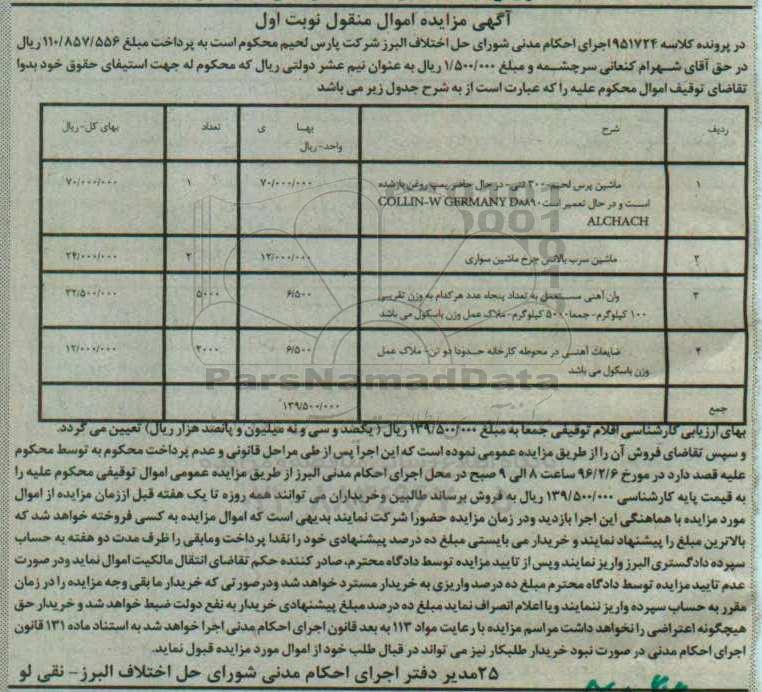 آگهی مزایده اموال منقول نوبت اول
در پرونده کلاسه ۹۵۱۷۲۴ اجرای احکام مدنی شورای حل اختلاف البرز شرکت پارس لحیم محکوم است به پرداخت مبلغ ۱۱۰/۸۵۷/۵۵۶ ریال
در حق آقای شهرام کنعانی سرچشمه و مبلغ ۱/۵۰۰/۰۰۰ ریال به عنوان نیم عشر دولتی ریال که محکوم له جهت استیفای حقوق خود بدوا
تقاضای توقیف اموال محکوم علیه را که عبارت است از به شرح جدول زیر می باشد
ردیف شرح بهـا ی واحد-ریال تعداد بهای کل-ریال
۱ ماشین پرس لحیم-۳۰۰ تنی- در حال حاضر پمپ روغن باز شده ۷۰/۰۰۰/۰۰۰ ۱ ۷۰/۰۰۰/۰۰۰
است و در حال تعمیر است COLLIN-W GERMANY D۸۸۹۰
ALCHACH
۲ ماشین سرب بالانس چرخ ماشین سواری ۱۲/۰۰۰/۰۰۰ ۲ ۲۴/۰۰۰/۰۰۰
۳ وان آهنی مستعمل به تعداد پنجاه عدد هر کدام به وزن تقریبی ۶/۵۰۰ ۵۰۰۰ ۳۲/۵۰۰/۰۰۰
۱۰۰ کیلوگرم- جمعا ۵۰۰۰ کیلوگرم- ملاک عمل وزن باسکول می باشد
۴ ضایعات آهنی در محوطه کارخانه حدودا دو تن- ملاک عمل ۶/۵۰۰ ۲۰۰۰ ۱۲/۰۰۰/۰۰۰
وزن باسکول می باشد
جمع ۱۳۹/۵۰۰/۰۰۰
ParsNamadData
بهای ارزیابی کارشناسی اقلام توقیفی جمعا به مبلغ ۱۳۹/۵۰۰/۰۰۰ ریال ( یکصد و سی و نه میلیون و پانصد هزار ریال) تعیین می گردد.
و سپس تقاضای فروش آن را از طریق مزایده عمومی نموده است که این اجرا پس از طی مراحل قانونی و عدم پرداخت محکوم به توسط محکوم
علیه قصد دارد در مورخ ۹۶/۲/۶ ساعت ۸ الی ۹ صبح در محل اجرای احکام مدنی البرز از طریق مزایده عمومی اموال توقیفی محکوم علیه را
به قیمت پایه کارشناسی ۱۳۹/۵۰۰/۰۰۰ ریال به فروش برساند طالبین وخریداران می توانند همه روزه تا یک هفته قبل اززمان مزایده از اموال
مورد مزایده با هماهنگی این اجرا بازدید ودر زمان مزایده حضورا شرکت نمایند بدیهی است که اموال مزایده به کسی فروخته خواهد شد که
بالاترین مبلغ را پیشنهاد نمایند و خریدار می بایستی مبلغ ده درصد پیشنهادی خود را نقدا پرداخت ومابقی را ظرف مدت دو هفته به حساب
سپرده دادگستری البرز واریز نمایند وپس از تایید مزایده توسط دادگاه محترم، صادر کننده حکم تقاضای انتقال مالکیت اموال نماید ودر صورت
عدم تایید مزایده توسط دادگاه محترم مبلغ ده درصد واریزی به خریدار مسترد خواهد شد ودرصورتی که خریدار ما بقی وجه مزایده را در زمان
مقرر به حساب سپرده واریز ننمایند ویا اعلام انصراف نماید مبلغ ده درصد مبلغ پیشنهادی خریدار به نفع دولت ضبط خواهد شد و خریدار حق
هیچگونه اعتراضی را نخواهد داشت مراسم مزایده با رعایت مواد ۱۱۳ به بعد قانون اجرای احکام مدنی اجرا خواهد شد به استناد ماده ۱۳۱ قانون
اجرای احکام مدنی در صورت نبود خریدار طلبکار نیز می تواند در قبال طلب خود از اموال مورد مزایده قبول نماید.
۲۵مدیر دفتر اجرای احکام مدنی شورای حل اختلاف البرز- نقی لو